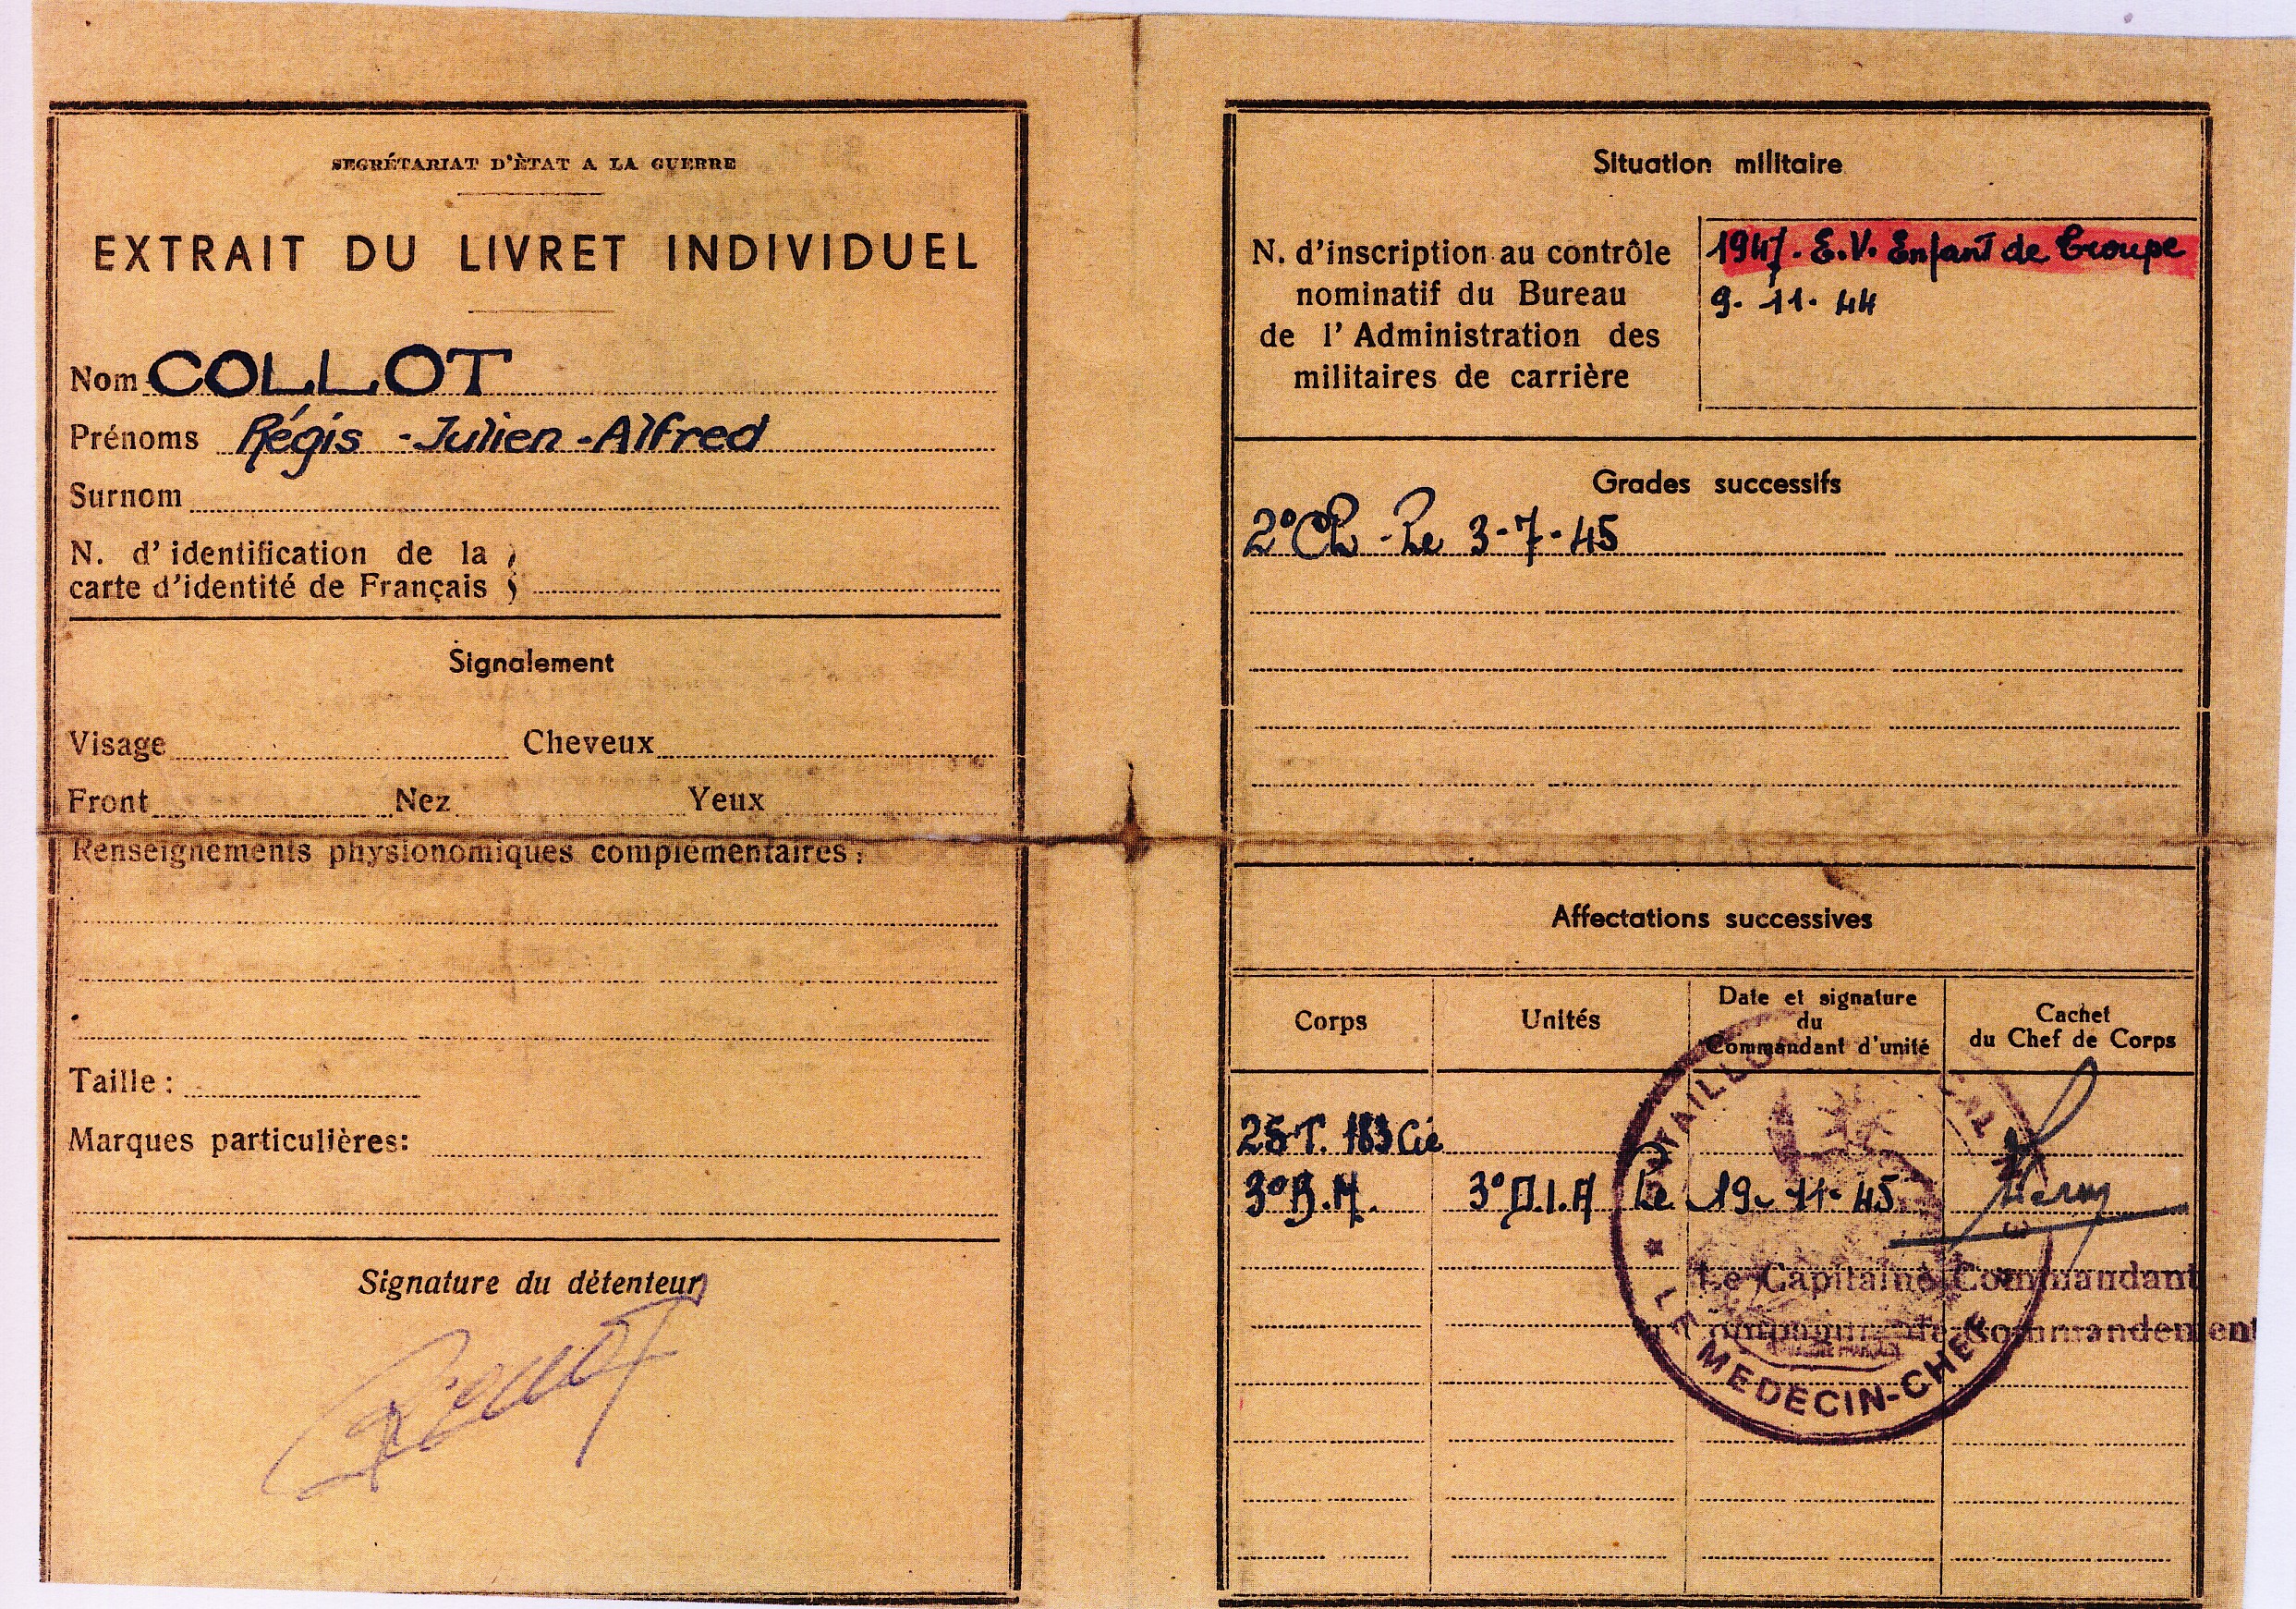 SECRÉTARIAT D'ÈTAT A LA GUERRE
EXTRAIT DU LIVRET INDIVIDUEL
Nom COLLOT
Prénoms Régis - Julien - Alfred
Surnom
N. d'identification de la
carte d'identité de Français
Signalement
Visage Cheveux
Front Nez Yeux
Renseignements physionomiques complémentaires :
Taille :
Marques particulières:
Signature du détenteur
Situation militaire
N. d'inscription au contrôle
nominatif du Bureau
de l'Administration des
militaires de carrière
1947. E.V. Enfant de Troupe
9. 11. 44
Grades successifs
2° Cl. - Le 3-7-45
Affectations successives
Corps
Unités
Date et signature
du
Commandant d'unité
Cachet
du Chef de Corps
25 T. 183 Cie
3° B.M. 3° D.I.A Le 19-11-45
BATAILLON MÉDICAL
Le Capitaine Commandant
Compagnie de Commandement
* LE MEDECIN-CHEF